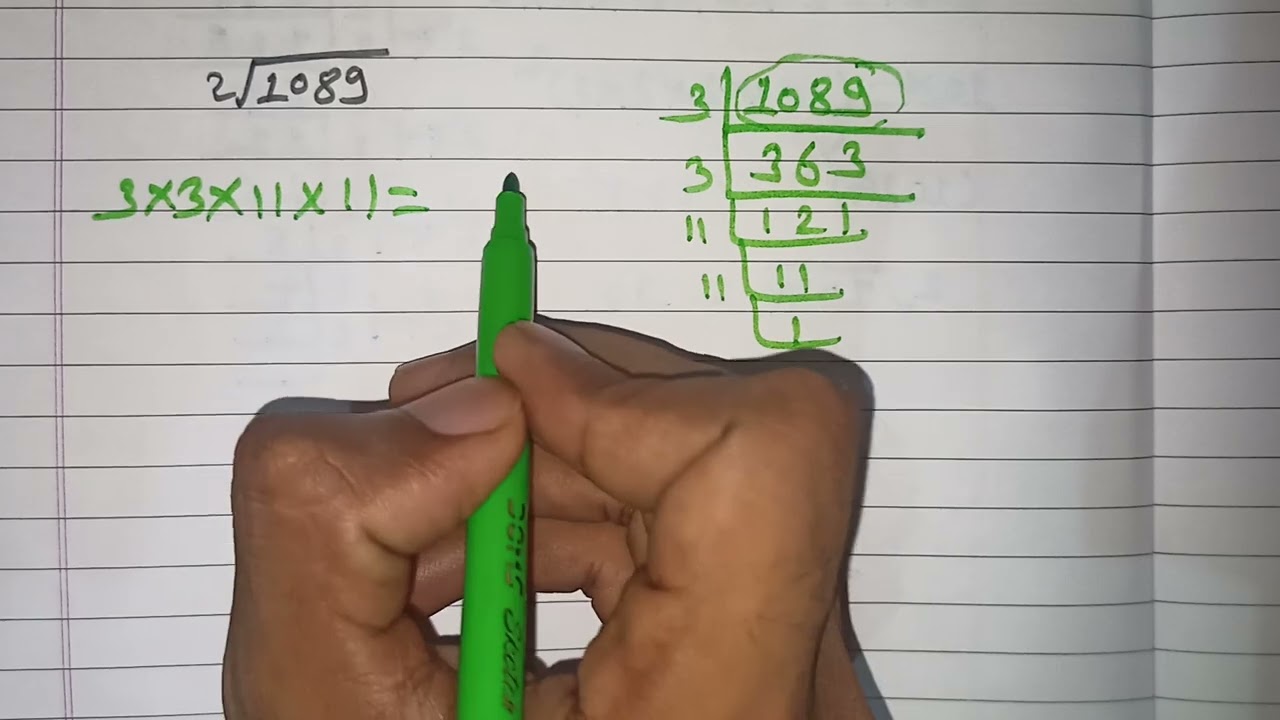 2√1089
3×3×11×11=
3 | 1089
3 | 363
11 | 121
11 | 11
1